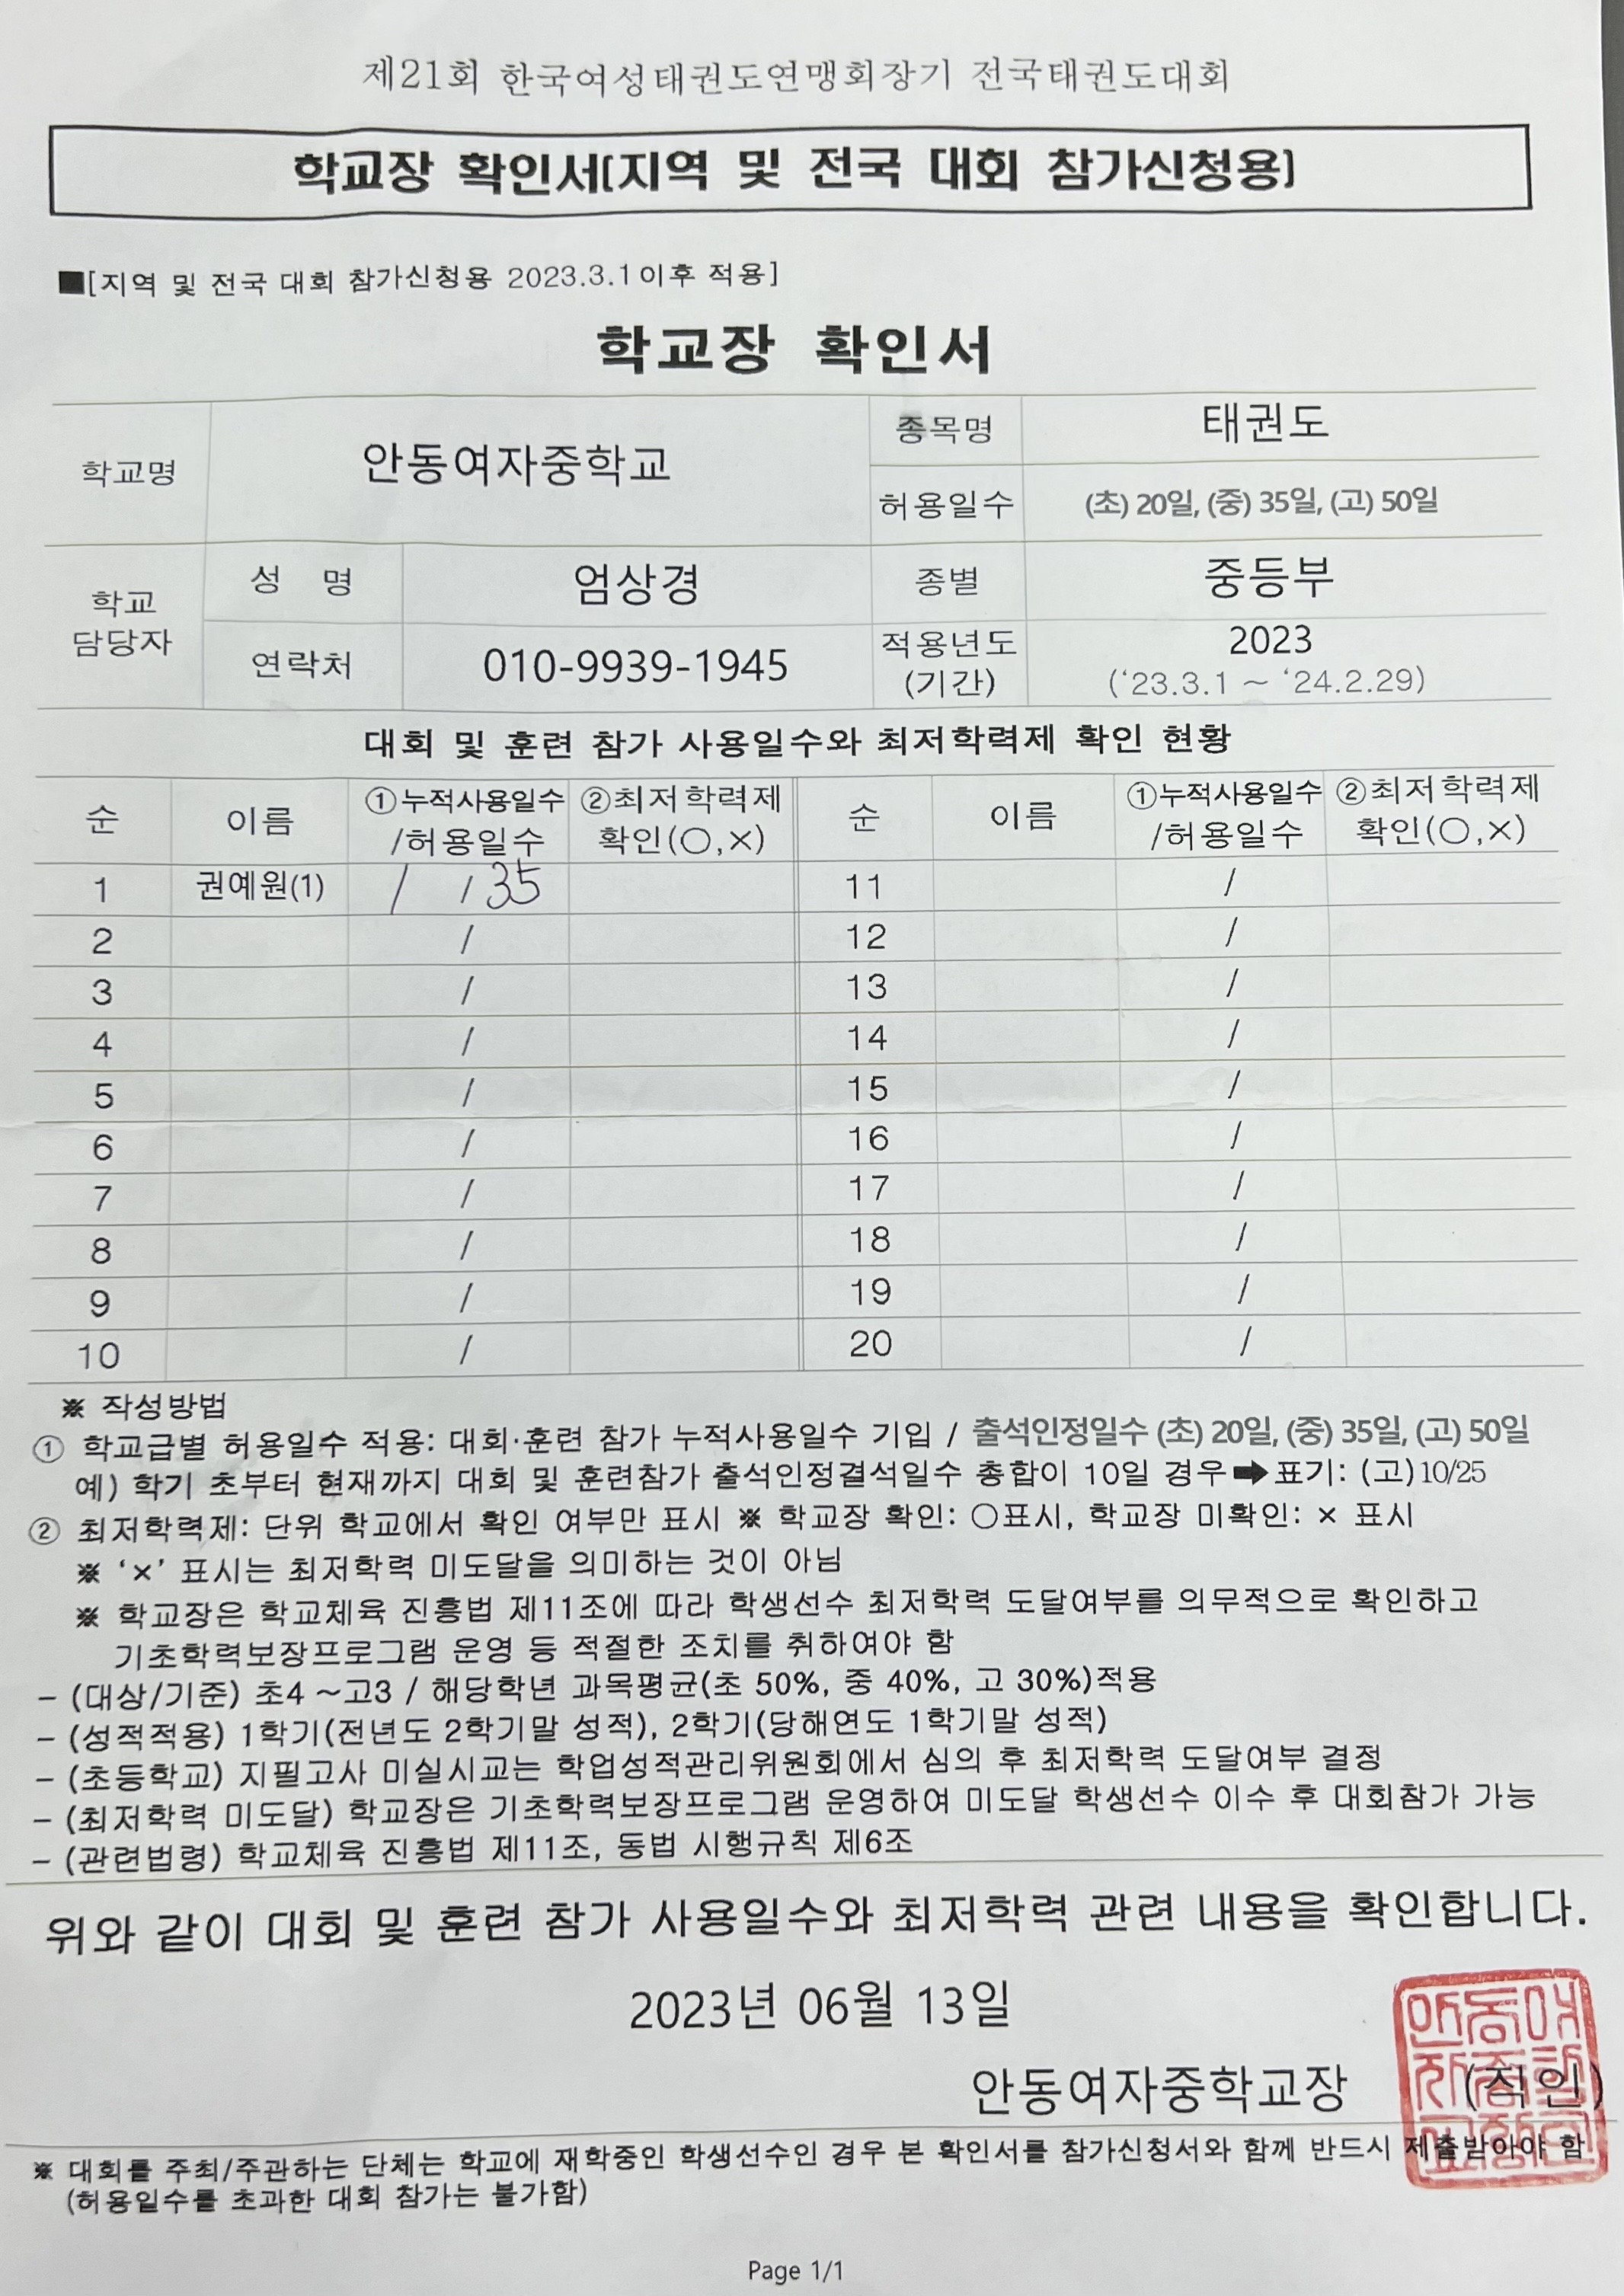 제21회 한국여성태권도연맹회장기 전국태권도대회
학교장 확인서(지역 및 전국 대회 참가신청용)
■[지역 및 전국 대회 참가신청용 2023.3.1이후 적용]
학교장 확인서
학교명 안동여자중학교 종목명 태권도
허용일수 (초) 20일, (중) 35일, (고) 50일
학교 담당자 성 명 엄상경 종별 중등부
연락처 010-9939-1945 적용년도 (기간) 2023
('23.3.1 ~ '24.2.29)
대회 및 훈련 참가 사용일수와 최저학력제 확인 현황
순 이름 ①누적사용일수 ②최저학력제 순 이름 ①누적사용일수 ②최저학력제
/허용일수 확인(○,×) /허용일수 확인(○,×)
1 권예원(1) / / 35 11 /
2 / 12 /
3 / 13 /
4 / 14 /
5 / 15 /
6 / 16 /
7 / 17 /
8 / 18 /
9 / 19 /
10 / 20 /
※ 작성방법
① 학교급별 허용일수 적용: 대회·훈련 참가 누적사용일수 기입 / 출석인정일수 (초) 20일, (중) 35일, (고) 50일
예) 학기 초부터 현재까지 대회 및 훈련참가 출석인정결석일수 총합이 10일 경우➡표기: (고)10/25
② 최저학력제: 단위 학교에서 확인 여부만 표시 ※ 학교장 확인: ○표시, 학교장 미확인: × 표시
※ '×' 표시는 최저학력 미도달을 의미하는 것이 아님
※ 학교장은 학교체육 진흥법 제11조에 따라 학생선수 최저학력 도달여부를 의무적으로 확인하고
기초학력보장프로그램 운영 등 적절한 조치를 취하여야 함
- (대상/기준) 초4 ~고3 / 해당학년 과목평균(초 50%, 중 40%, 고 30%)적용
- (성적적용) 1학기(전년도 2학기말 성적), 2학기(당해연도 1학기말 성적)
- (초등학교) 지필고사 미실시교는 학업성적관리위원회에서 심의 후 최저학력 도달여부 결정
- (최저학력 미도달) 학교장은 기초학력보장프로그램 운영하여 미도달 학생선수 이수 후 대회참가 가능
- (관련법령) 학교체육 진흥법 제11조, 동법 시행규칙 제6조
위와 같이 대회 및 훈련 참가 사용일수와 최저학력 관련 내용을 확인합니다.
2023년 06월 13일
안동여자중학교장 (직인)
안동여
자중학
교장인
※ 대회를 주최/주관하는 단체는 학교에 재학중인 학생선수인 경우 본 확인서를 참가신청서와 함께 반드시 제출받아야 함
(허용일수를 초과한 대회 참가는 불가함)
Page 1/1